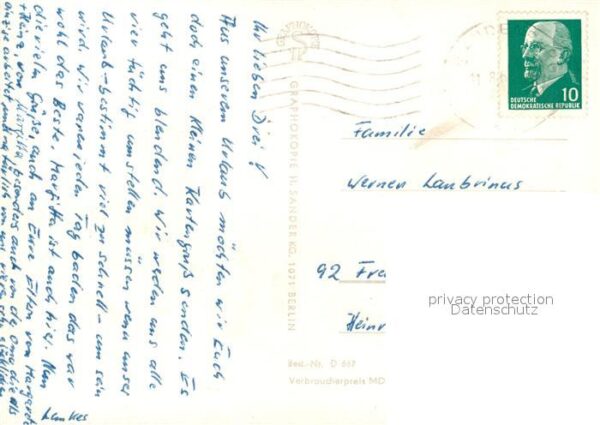 Ihr lieben Drei!
Aus unserem Urlaub möchten wir Euch
doch einen kleinen Kartengruß senden. Es
geht uns blendend. Wir werden uns alle
vier tüchtig umstellen müssen wenn unser
Urlaub - bestimmt viel zu schnell - um sein
wird. Wir waren jeden Tag baden das war
wohl das Beste. Margitta ist auch hier. Nun
die vielen Grüße, auch an Eure Eltern von Margarete
+ Heinz von Margitta besonders auch von der Oma die als
einzige arbeitet und
GRAPHOKOPIE H. SANDER KG, 1071 BERLIN
Best.-Nr. D 667
Verbraucherpreis MD
10
DEUTSCHE
DEMOKRATISCHE REPUBLIK
Familie
Werner Laubrinus
92 Fre
Heinr
privacy protection
Datenschutz